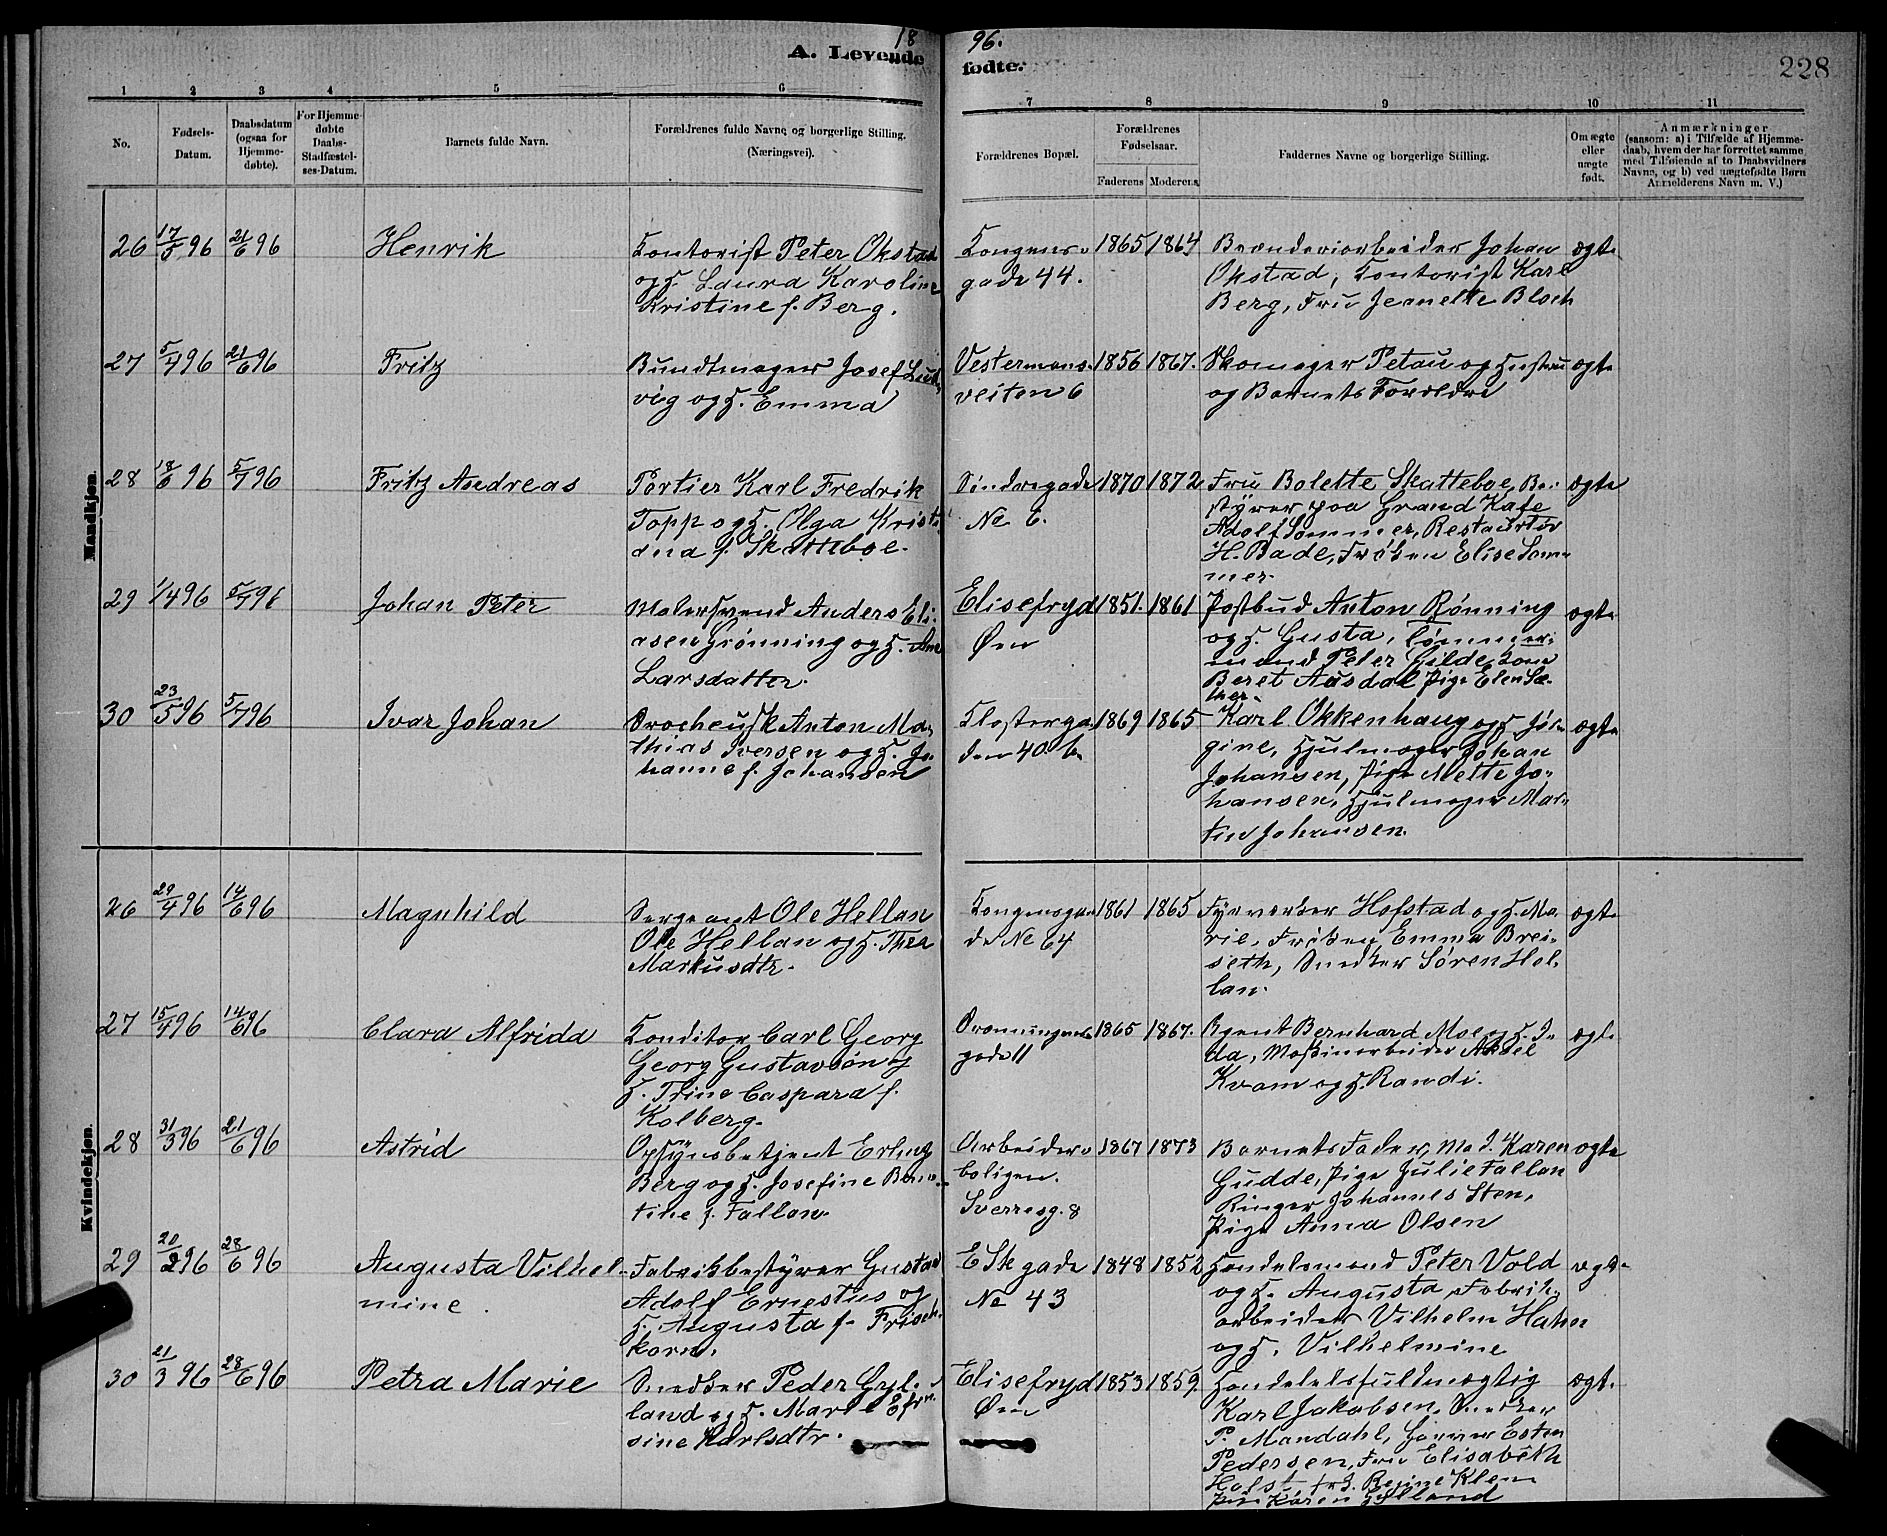 1896.
A. Levende fødte.
228
1 2 3 4 5 6 7 8 9 10 11
No.
Fødsels-Datum.
Daabsdatum (ogsaa for Hjemme-døbte).
For Hjemme-døbte Daabs-Stadfæstel-ses-Datum.
Barnets fulde Navn.
Forældrenes fulde Navne og borgerlige Stilling. (Næringsvei).
Forældrenes Bopæl.
Forældrenes Fødselsaar.
Faderens Moderens
Faddernes Navne og borgerlige Stilling.
Om ægte eller uægte født.
Anmærkninger
(saasom: a) i Tilfælde af Hjemme-
daab, hvem der har forrettet samme,
med Tilføiende af to Daabsvidners
Navne, og b) ved uægtefødte Børn
Anmelderens Navn m. V.)
Mandkjøn.
26 17/5 96 21/6 96 Henrik
Kontorist Peter Okstad
og H. Laura Karoline
Kristine f. Berg.
Kongens-
gade 44.
1865 1864
Brænderiarbeider Johan
Okstad, Kontorist Karl
Berg, Fru Jeanette Bloch
ægte
27 5/4 96 21/6 96 Fritz
Bundtmager Josef Lud-
vig og H. Emma
Vestermans-
veiten 6
1856 1867.
Skomager Petau og Hustru
og Barnets Forældre
ægte
28 18/6 96 5/7 96 Fritz Andreas
Portier Karl Fredrik
Topp og H. Olga Kristi-
ana f. Skatteboe.
Søndregade
No 6.
1870 1872
Fru Bolette Skatteboe, Be-
styrer paa Grand Kafe
Adolf Sommer, Restauratør
H. Bade, Frøken Elise Som-
mer.
ægte
29 1/4 96 5/7 96 Johan Peter
Malersvend Anders Eli-
asen Grønning og H. Ane
Larsdatter.
Elisefryd
Øen
1851. 1861
Postbud Anton Rønning
og H. Gusta, Tømmer-
mand Peter Gilde, Kone
Beret Ausdal Pige Elen Sæ-
ther.
ægte
30 23/5 96 5/7 96 Ivar Johan
Droscheusk Anton Ma-
thias Iversen og H. Jo-
hanne f. Johansen
Klosterga-
den 40 b.
1869 1865
Karl Okkenhaug og H. Jør-
gine, Hjulmager Johan
Johansen, Pige Mette Jo-
hansen, Hjulmager Mar-
tin Johansen.
ægte
Kvindekjøn.
26 29/4 96 14/6 96 Magnhild
Sergeant Ole Hellan
Ole Hellan og H. Thea
Markusdtr.
Kongensga-
de No 64
1861 1865
Fyrværker Hofstad og H. Ma-
rie, Frøken Emma Brei-
seth, Snedker Søren Hel-
lan.
ægte
27 15/4 96 14/6 96 Clara Alfrida
Konditor Carl Georg
Georg Gustavsøn og
H. Trine Caspara f.
Kolberg.
Dronningens
gade 11
1865 1867.
Agent Bernhard Moe og H. I-
da, Maskinarbeider Aksel
Kvam og H. Randi.
ægte
28 31/3 96 21/6 96 Astrid
Opsynsbetjent Erling
Berg og H. Josefine Bern-
tine f. Fallan
Arbeider-
boligen.
Sverresg. 8
1867 1873
Barnets Fader, Mad. Karen
Gudde, Pige Julie Fallan
Ringer Johannes Sten,
Pige Anna Olsen
ægte
29 20/2 96 28/6 96 Augusta Vilhel-
mine.
Fabrikbestyrer Gustav
Adolf Ernestus og
H. Augusta f. Frisch-
korn.
E Sk gade
No 43
1848 1852
Handelsmand Peter Vold
og H. Augusta, Fabrik-
arbeider Vilhelm Haher
og H. Vilhelmine
ægte
30 21/3 96 28/6 96 Petra Marie
Snedker Peder Gyl-
land og H. Marie Efro-
sine Karlsdtr.
Elisefryd
Øen
1853 1859.
Handelsfuldmægtig
Karl Jakobsen, Snedker
P. Mandahl, Esten
Pedersen, Fru Elisabeth
Holst, Regine Klem
Pige Karen Gylland
ægte